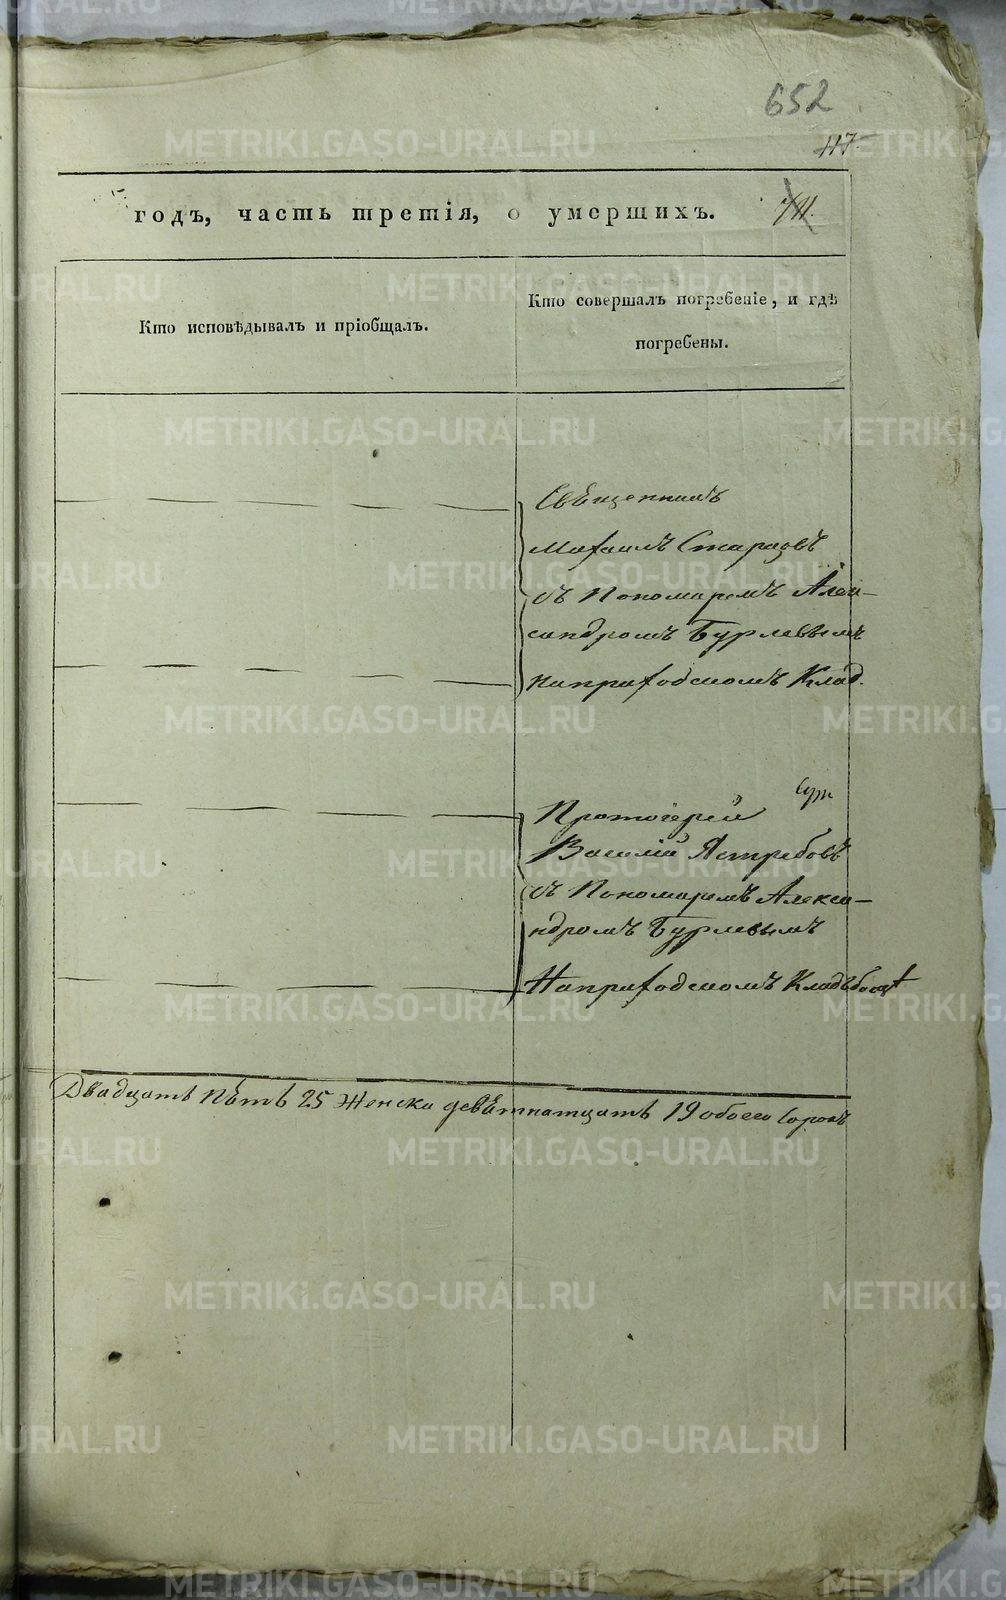 652
117
годъ, часть третія, о умершихъ.
Кто исповѣдывалъ и пріобщалъ.
Кто совершалъ погребеніе, и гдѣ
погребены.
Священникъ
Михаилъ Старцовъ
съ Пономаремъ Алек-
сандромъ Бурлевымъ
наприходскомъ Клад.
Протоіерей
Василій Ястребовъ
съ Пономаремъ Алекса-
ндромъ Бурлевымъ
Наприходскомъ Кладъбищѣ
Двадцать пѣть 25 женска девѣтнатцать 19 обоего сорокъ
METRIKI.GASO-URAL.RU